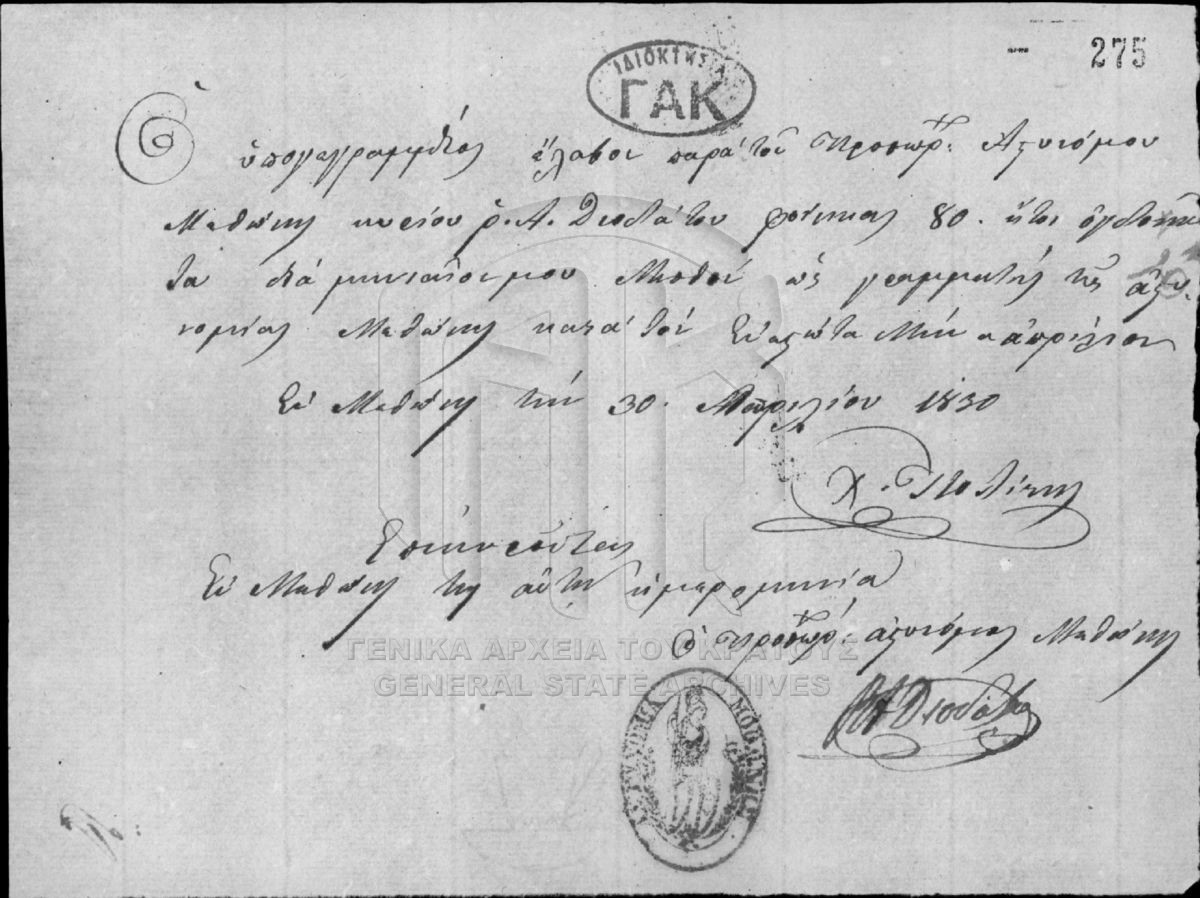 275
ΙΔΙΟΚΤΗΣΙΑ
ΓΑΚ
Ὁ ὑπογεγραμμένος ἔλαβον παρὰ τοῦ Προσωρ: Ἀστυνόμου
Μεθώνης κυρίου Ρ. Α. Διοδάτου φοίνικας 80. ἤτοι ὀγδοήκο
τα διὰ μηνιαῖον μου Μισθὸν ὡς γραμματεὺς τῆς ἀστυ-
νομίας Μεθώνης κατὰ τὸν Μῆνα ἀπρίλιον
Ἐν Μεθώνῃ τὴν 30. Ἀπριλίου 1830
Χ.
Ἐπικυροῦται
Ἐν Μεθώνῃ τῇ αὐτῇ ἡμερομηνίᾳ
Ὁ Προσωρ: ἀστυνόμος Μεθώνης
Διοδάτος
ΓΕΝΙΚΑ ΑΡΧΕΙΑ ΤΟΥ ΚΡΑΤΟΥΣ
GENERAL STATE ARCHIVES